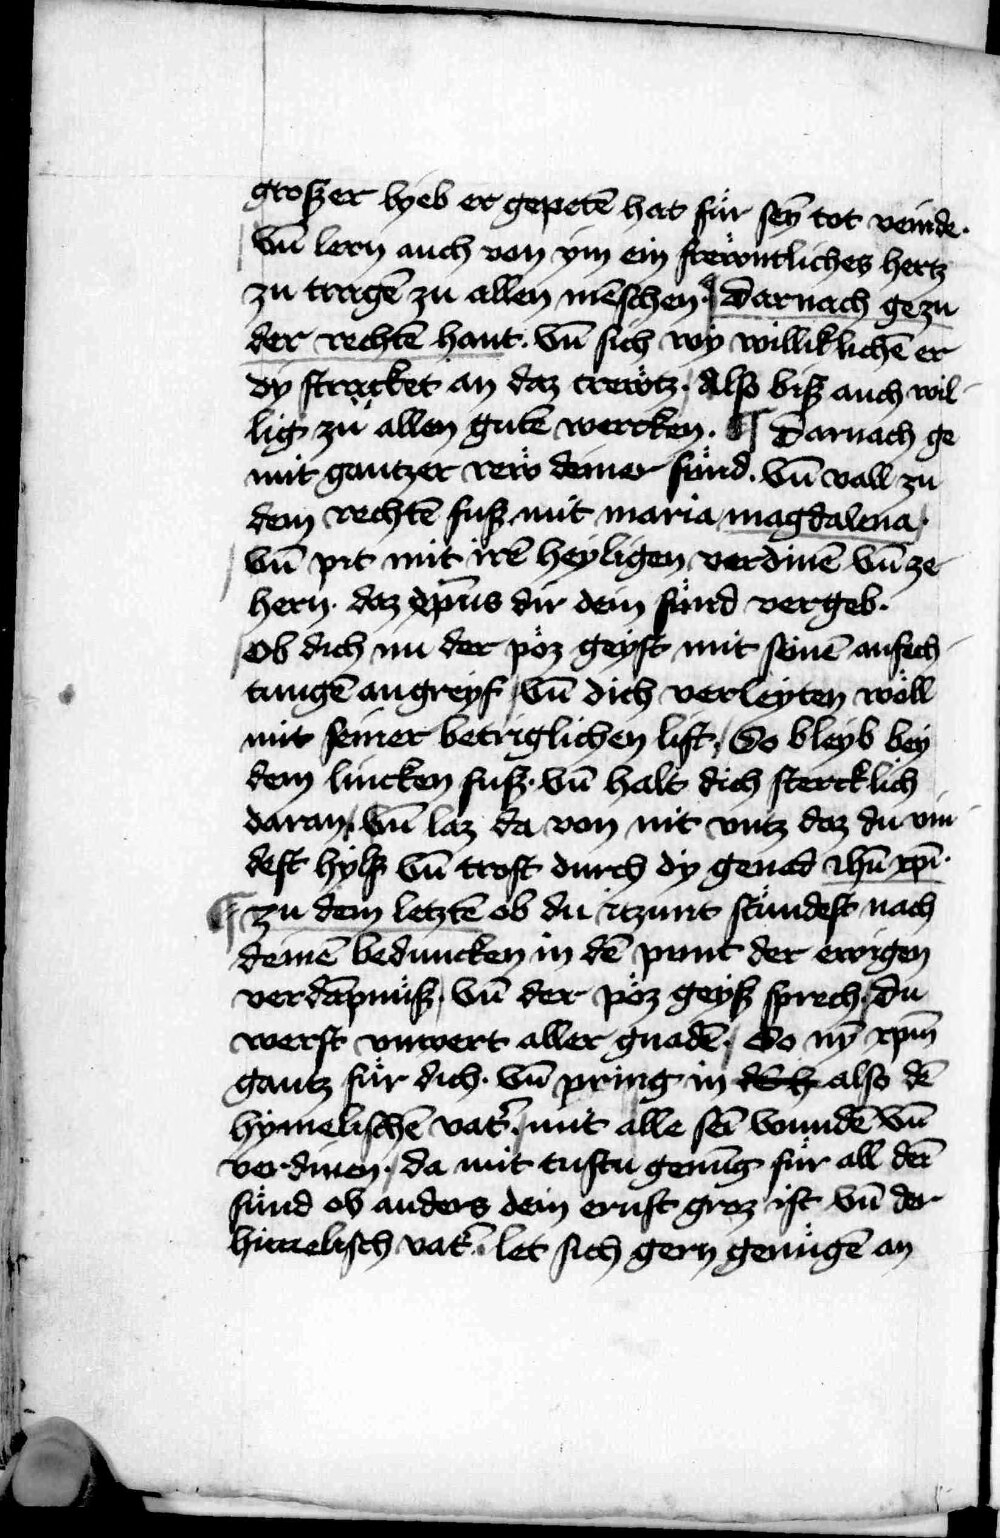 groſzer lyeb er gepetē hat für ſeȳ tot veinde.
Vn̄ lern auch von ym ein frewntliches hertz
zu tragē zu allen mēſchen. Darnach ge zu
der rechtē hant. Vn̄ ſich wy williklichē er
dy ſtracket an daz crewtz. Alſo biſz auch wil
lig zu allen gutē wercken. ¶ Darnach ge
mit gantzer rew deiner ſünd. Vn̄ vall zu
dem rechtē fuſz mit maria magdalena.
Vn̄ pit mit irē heyligen verdinē Vn̄ ze
hern. daz xp̄us dir dein ſünd vergeb.
Ob dich nu der pöz geyſt mit ſeinē anfech
tungē angreyf Vn̄ dich verleyten wöll
mit ſeiner betriglichen liſt. So bleyb bey
dem lincken fuſz. Vn̄ halt dich ſtercklich
daran. Vn̄ laz da von nit vntz daz du vin
deſt hylff Vn̄ troſt durch dy genad ihū xp̄i.
¶ zu dem letztē ob du itzunt ſtündeſt nach
deinē beduncken in dē punt der ewigen
verdāpnüſz. Vn̄ der pöz geyſt ſprech. Du
werſt vnwert aller gnadē. So nȳ xp̄m
gantz für dich. Vn̄ pring in alſo dē
hymeliſchē vat̓. mit alle ſeī wundē Vn̄
verdinen. da mit tuſtu genūg für all deī
ſünd ob anders dein ernſt groz iſt Vn̄ der
himeliſch vat̓. let ſich gern genügē an